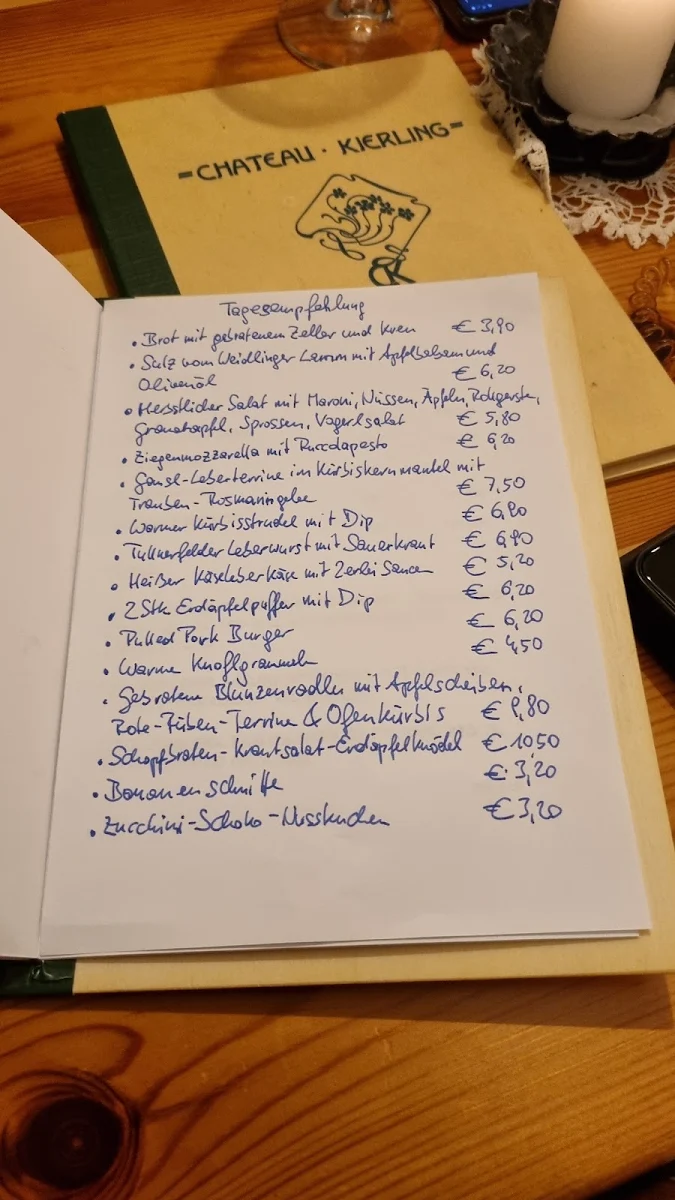 =CHATEAU · KIERLING=
Tagesempfehlung
• Brot mit gebratenem Zeller und Kren € 3,90
• Sulz vom Weidlinger Lamm mit Apfelbalsam und
Olivenöl € 6,20
• Herbstlicher Salat mit Maroni, Nüssen, Äpfeln, Rollgerste,
Granatapfel, Sprossen, Vogerlsalat € 5,80
• Ziegenmozzarella mit Ruccolapesto € 6,20
• Gansl-Leberterrine im Kürbiskernmantel mit
Trauben-Rosmaringelee € 7,50
• Warmer Kürbisstrudel mit Dip
• Tullnerfelder Leberwurst mit Sauerkraut
• Heißer Käseleberkäse mit 2erlei Saucen € 5,20
• 2 Stk Erdäpfelpuffer mit Dip € 6,20
• Pulled Pork Burger € 6,20
• Warme Knoflgrammeln € 4,50
• Gebratene Blunzenradln mit Apfelscheiben,
Rote-Rüben-Terrine & Ofenkürbis
• Schopfbraten-Krautsalat-Erdäpfelknödel € 10,50
• Bananenschnitte € 3,20
• Zucchini-Schoko-Nusskuchen € 3,20